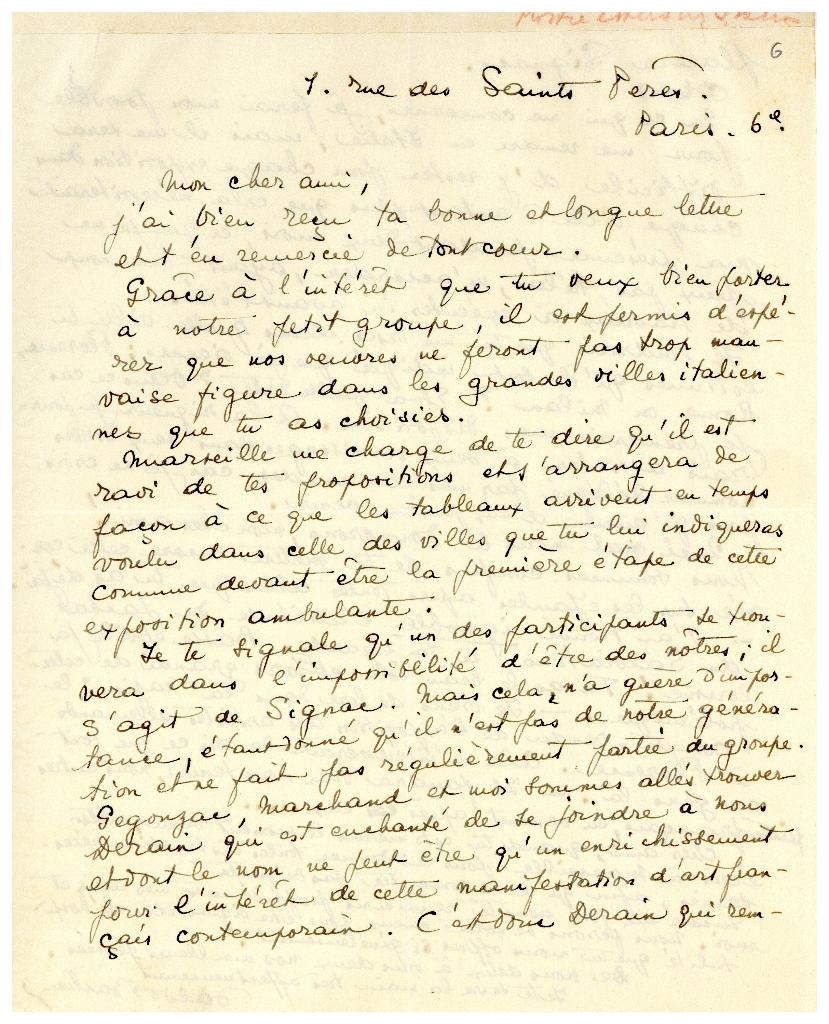 6
7. rue des Saints Pères.
Paris. 6e.
Mon cher ami,
j'ai bien reçu ta bonne et longue lettre
et t'en remercie de tout coeur.
Grâce à l'intérêt que tu veux bien porter
à notre petit groupe, il est permis d'espé-
rer que nos oeuvres ne feront pas trop mau-
vaise figure dans les grandes villes italien-
nes que tu as choisies.
Marseille me charge de te dire qu'il est
ravi de tes propositions et s'arrangera de
façon à ce que les tableaux arrivent en temps
voulu dans celle des villes que tu lui indiqueras
comme devant être la première étape de cette
exposition ambulante.
Je te signale qu'un des participants se trou-
vera dans l'impossibilité d'être des nôtres; il
s'agit de Signac. Mais cela n'a guère d'impor-
tance, étant donné qu'il n'est pas de notre généra-
tion et ne fait pas régulièrement partie du groupe.
Segonzac, Marchand et moi sommes allés trouver
Derain qui est enchanté de se joindre à nous
et dont le nom ne peut être qu'un enrichissement
pour l'intérêt de cette manifestation d'art fran-
çais contemporain. C'est donc Derain qui rem-